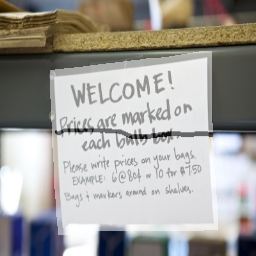 WELCOME!
Prices are marked on
each bulb box.
Please write prices on your bags.
EXAMPLE: 6@80¢ or 10 for $7.50
Bags & markers around on shelves.